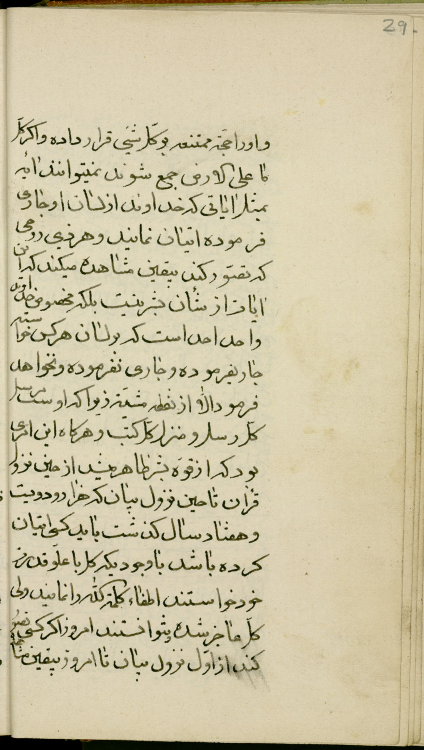 29.
و او را حجة ممتنعه بر کل شیئی قرار داده و اگر کل
ما علی الارض جمع شوند نمیتوانند آیهٔ
بمثل آیاتی که خداوند از لسان او جاری
فرموده اتیان نمایند و هر ذی روحی
که تصور کند بیقین مشاهده میکند که این
آیات از شأن بشر نیست بلکه مخصوص خداوند
واحد احد است که بر لسان هر کس خواسته
جاری فرموده و جاری نفرموده و نخواهد
فرمود الا از نقطه مشیت زیرا که اوست مرسل
کل رسل و منزل کل کتب و هرگاه این امری
بود که از قوه بشر ظاهر میشد از حین نزول
قرآن تا حین نزول بیان که هزار و دویست
و هفتاد سال گذشت باید کسی اتیان
کرده باشد با وجودیکه کل با علو قدرت
خود خواستند اطفاء کلمة الله را نمایند ولی
کل عاجز شده و نتوانستند امروز اگر کسی تصور
کند از اول نزول بیان تا امروز بیقین مشاهده